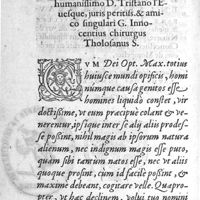 humanissimo D. Tristano l'E-
uesque, juris peritiss. & ami-
co singulari G. Inno-
centius chirurgus
Tholosanus S.
CVM Dei Opt. Max. totius
huiusce mundi opificis, homi
num que causa genitos esse
homines liquido constet, vir
doctissime, vt eum præcipuè colant & ve-
nerentur, ipsique inter se alij alijs prodes-
se possint, nihil magis ab ipsorum natura
alienum, nec indignum magis esse puto,
quàm sibi tantùm natos esse, nec vt alijs
quoque prosint, cum id facilè possint, &
maximè debeant, cogitare velle. Quaprop-
ter, vt hac declinem, volui tuo nomini